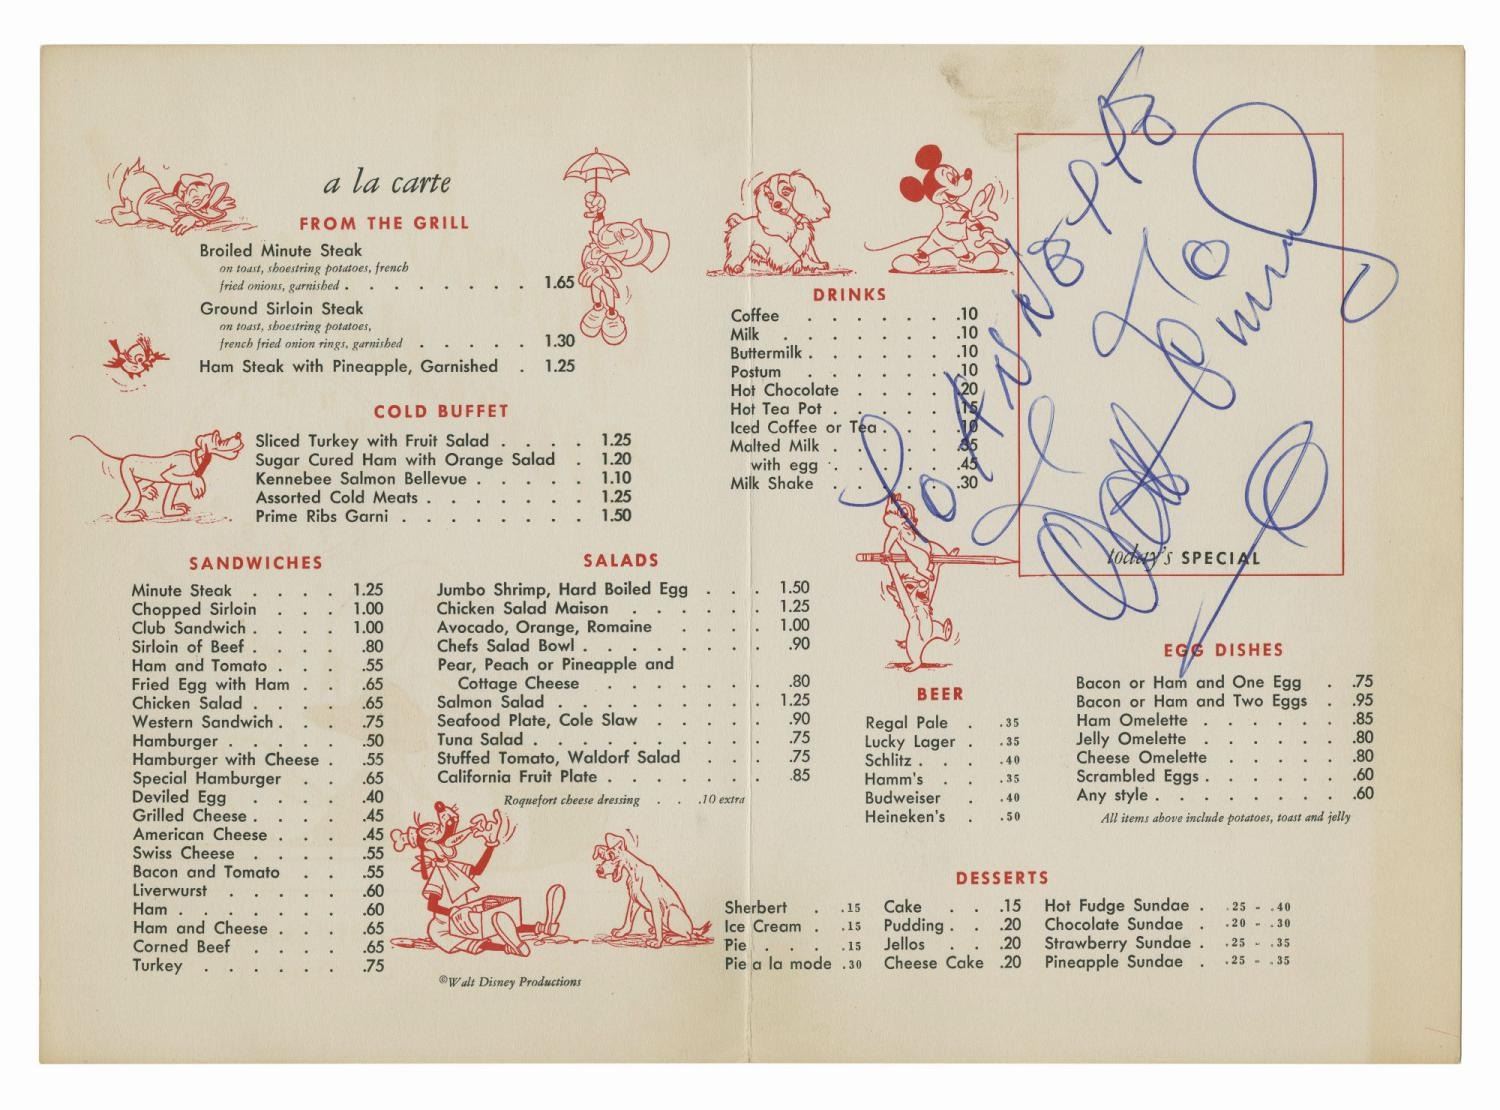 a la carte
FROM THE GRILL
Broiled Minute Steak
on toast, shoestring potatoes, french
fried onions, garnished . . . . . . . . 1.65
Ground Sirloin Steak
on toast, shoestring potatoes,
french fried onion rings, garnished . . . . . 1.30
Ham Steak with Pineapple, Garnished . 1.25
COLD BUFFET
Sliced Turkey with Fruit Salad . . . . 1.25
Sugar Cured Ham with Orange Salad . 1.20
Kennebee Salmon Bellevue . . . . . 1.10
Assorted Cold Meats . . . . . . . 1.25
Prime Ribs Garni . . . . . . . . 1.50
SANDWICHES
Minute Steak . . . . 1.25
Chopped Sirloin . . . 1.00
Club Sandwich . . . . 1.00
Sirloin of Beef . . . . .80
Ham and Tomato . . . .55
Fried Egg with Ham . . .65
Chicken Salad . . . . .65
Western Sandwich . . . .75
Hamburger . . . . . .50
Hamburger with Cheese . .55
Special Hamburger . . .65
Deviled Egg . . . . .40
Grilled Cheese . . . . .45
American Cheese . . . .45
Swiss Cheese . . . . .55
Bacon and Tomato . . .55
Liverwurst . . . . . .60
Ham . . . . . . . .60
Ham and Cheese . . . .65
Corned Beef . . . . .65
Turkey . . . . . . .75
SALADS
Jumbo Shrimp, Hard Boiled Egg . . . 1.50
Chicken Salad Maison . . . . . . 1.25
Avocado, Orange, Romaine . . . . 1.00
Chefs Salad Bowl . . . . . . . . .90
Pear, Peach or Pineapple and
Cottage Cheese . . . . . . . .80
Salmon Salad . . . . . . . . . 1.25
Seafood Plate, Cole Slaw . . . . . .90
Tuna Salad . . . . . . . . . . .75
Stuffed Tomato, Waldorf Salad . . . .75
California Fruit Plate . . . . . . . .85
Roquefort cheese dressing . . .10 extra
©Walt Disney Productions
DRINKS
Coffee . . . . . . .10
Milk . . . . . . . .10
Buttermilk . . . . . . .10
Postum . . . . . . .10
Hot Chocolate . . . . .20
Hot Tea Pot . . . . . .15
Iced Coffee or Tea . . . .10
Malted Milk . . . . . .35
with egg . . . . . .45
Milk Shake . . . . . .30
To
today's SPECIAL
BEER
Regal Pale . .35
Lucky Lager . .35
Schlitz . . . .40
Hamm's . . .35
Budweiser . .40
Heineken's . .50
EGG DISHES
Bacon or Ham and One Egg . .75
Bacon or Ham and Two Eggs . .95
Ham Omelette . . . . . . .85
Jelly Omelette . . . . . . .80
Cheese Omelette . . . . . .80
Scrambled Eggs . . . . . . .60
Any style . . . . . . . . .60
All items above include potatoes, toast and jelly
DESSERTS
Sherbert . .15
Ice Cream . .15
Pie . . . .15
Pie a la mode .30
Cake . . .15
Pudding . . .20
Jellos . . .20
Cheese Cake .20
Hot Fudge Sundae . .25 - .40
Chocolate Sundae . .20 - .30
Strawberry Sundae . .25 - .35
Pineapple Sundae . .25 - .35